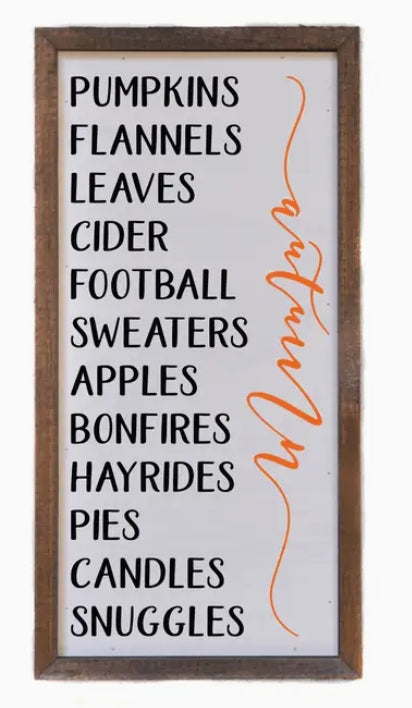 PUMPKINS
FLANNELS
LEAVES
CIDER
FOOTBALL
SWEATERS
APPLES
BONFIRES
HAYRIDES
PIES
CANDLES
SNUGGLES
autumn